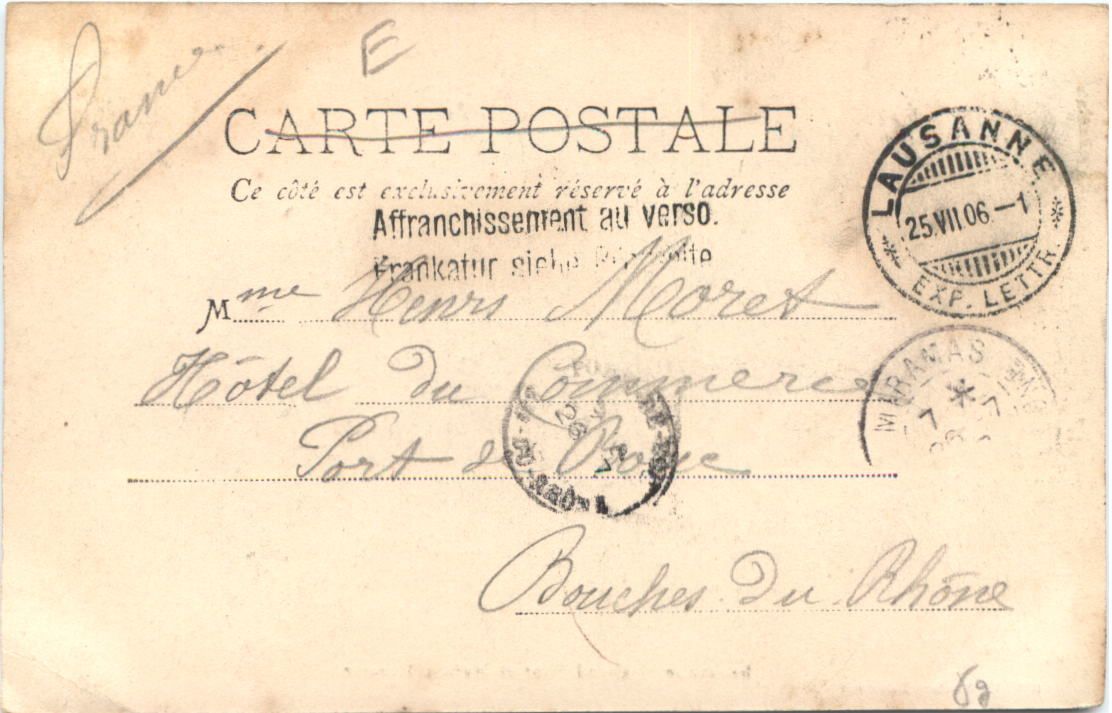 France.
E
CARTE POSTALE
Ce côté est exclusivement réservé à l'adresse
Affranchissement au verso.
Frankatur siehe Rückseite
LAUSANNE
25.VII.06.–1
EXP. LETTR.
Mme Henri Moret
Hôtel du Commerce
Port de Bouc
MIRAMAS
Bouches du Rhône